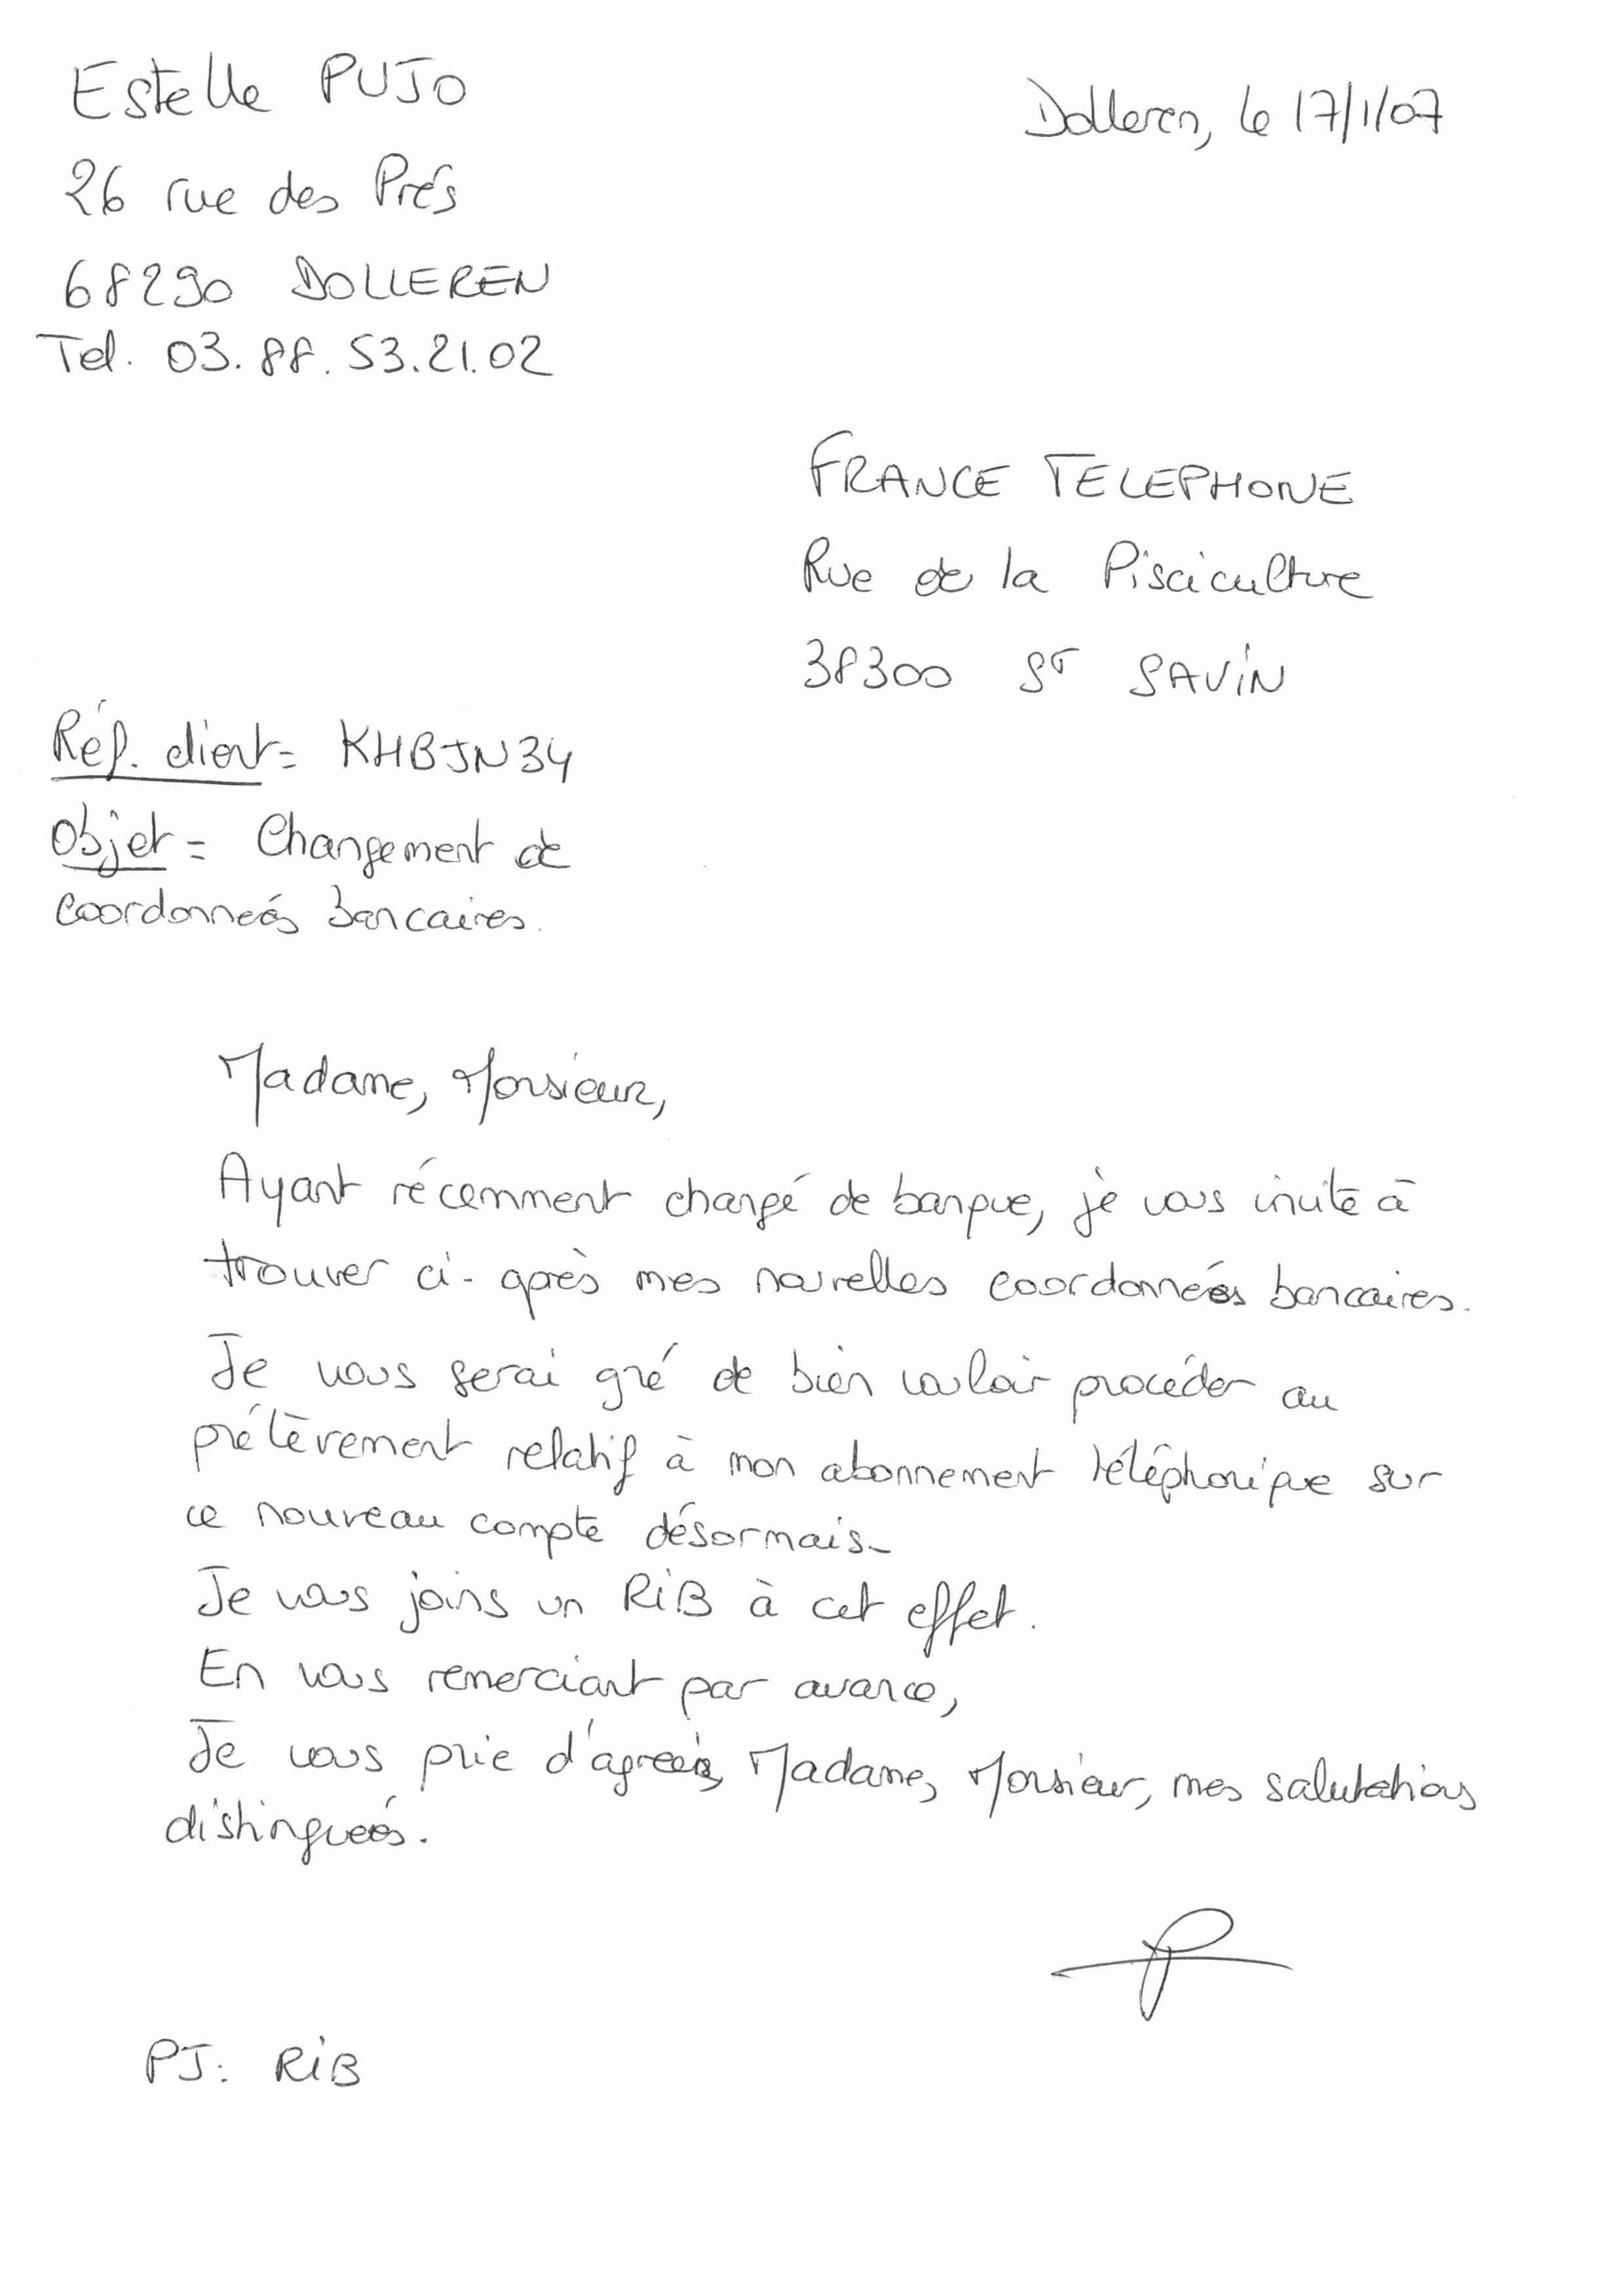 Estelle PUJO
Dolleren, le 17/1/07
26 rue des Prés
68290 DOLLEREN
Tel. 03.88.53.21.02
FRANCE TELEPHONE
Rue de la Pisciculture
38300 ST SAVIN
Réf. client = KHBJN34
Objet = Changement de
coordonneés bancaires.
Madame, Monsieur,
Ayant récemment changé de banque, je vous invite à
trouver ci-après mes nouvelles coordonneés bancaires.
Je vous serai gré de bien vouloir procéder au
prélèvement relatif à mon abonnement téléphonique sur
ce nouveau compte désormais.
Je vous joins un RIB à cet effet.
En vous remerciant par avance,
Je vous prie d'agréer, Madame, Monsieur, mes salutations
distingueés.
PJ: RIB